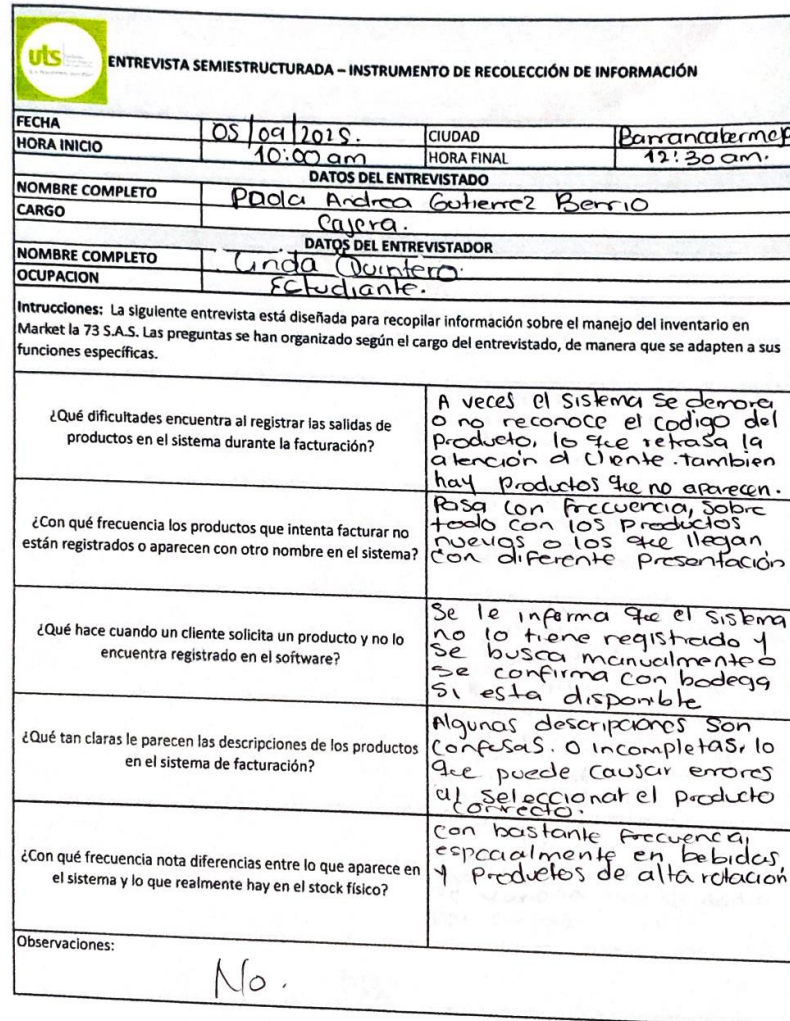 uts
ENTREVISTA SEMIESTRUCTURADA – INSTRUMENTO DE RECOLECCIÓN DE INFORMACIÓN
FECHA 05/09/2025. CIUDAD Barrancabermeja
HORA INICIO 10:00 am HORA FINAL 12:30 am.
DATOS DEL ENTREVISTADO
NOMBRE COMPLETO Paola Andrea Gutierrez Berrio
CARGO Cajera.
DATOS DEL ENTREVISTADOR
NOMBRE COMPLETO Linda Quintero.
OCUPACION Estudiante.
Intrucciones: La siguiente entrevista está diseñada para recopilar información sobre el manejo del inventario en
Market la 73 S.A.S. Las preguntas se han organizado según el cargo del entrevistado, de manera que se adapten a sus
funciones específicas.
¿Qué dificultades encuentra al registrar las salidas de
productos en el sistema durante la facturación?
A veces el sistema se demora
o no reconoce el codigo del
producto, lo que retrasa la
atención al cliente. tambien
hay productos que no aparecen.
¿Con qué frecuencia los productos que intenta facturar no
están registrados o aparecen con otro nombre en el sistema?
Pasa con frecuencia, sobre
todo con los productos
nuevos o los que llegan
con diferente presentación
¿Qué hace cuando un cliente solicita un producto y no lo
encuentra registrado en el software?
Se le informa que el sistema
no lo tiene registrado y
se busca manualmente o
se confirma con bodega
si esta disponible
¿Qué tan claras le parecen las descripciones de los productos
en el sistema de facturación?
Algunas descripciones son
confusas. o incompletas, lo
que puede causar errores
al seleccionar el producto
correcto.
¿Con qué frecuencia nota diferencias entre lo que aparece en
el sistema y lo que realmente hay en el stock físico?
con bastante frecuencia,
especialmente en bebidas
y productos de alta rotación
Observaciones:
No.